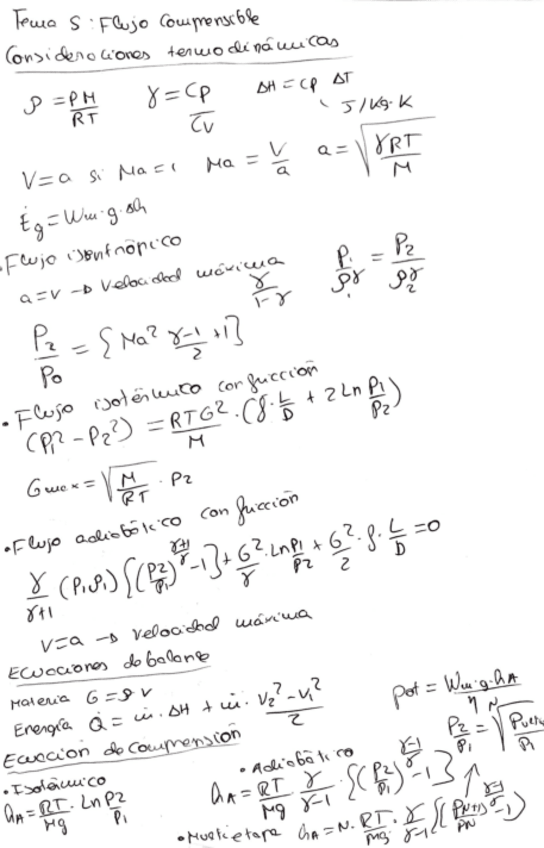 Tema 5: Flujo Compresible
Consideraciones termodinámicas
ρ = PM/RT   γ = Cp/Cv   ΔH = Cp ΔT
J/kg·K
V=a si Ma=1   Ma = V/a   a = √(γRT/M)
Ėg = Wm·g·Δh
Flujo isentrópico
a=v → velocidad máxima   P₁/ρ₁^γ = P₂/ρ₂^γ
P₂/P₀ = {Ma² (γ-1)/2 +1}^(γ/(1-γ))
• Flujo isotérmico con fricción
(P₁² - P₂²) = RTG²/M · (f·L/D + 2 Ln P₁/P₂)
Gmax = √(M/RT) · P₂
• Flujo adiabático con fricción
γ/(γ+1) (P₁ρ₁) {(P₂/P₁)^((γ+1)/γ) -1} + G²/γ · Ln P₁/P₂ + G²/2 · f · L/D = 0
V=a → velocidad máxima
Ecuaciones de balance
Materia G = ρ v
Energía Q̇ = ṁ · ΔH + ṁ · (V₂² - V₁²)/2
Pot = Wm·g·hA/η
Ecuación de compresión
P₂/P₁ = ᴺ√(PN+1/P₁)
• Isotérmico
hA = RT/Mg · Ln P₂/P₁
• Adiabático
hA = RT/Mg · γ/(γ-1) · {(P₂/P₁)^((γ-1)/γ) -1}
• Multietapa hA = N · RT/Mg · γ/(γ-1) {(PN+1/PN)^((γ-1)/γ) -1}